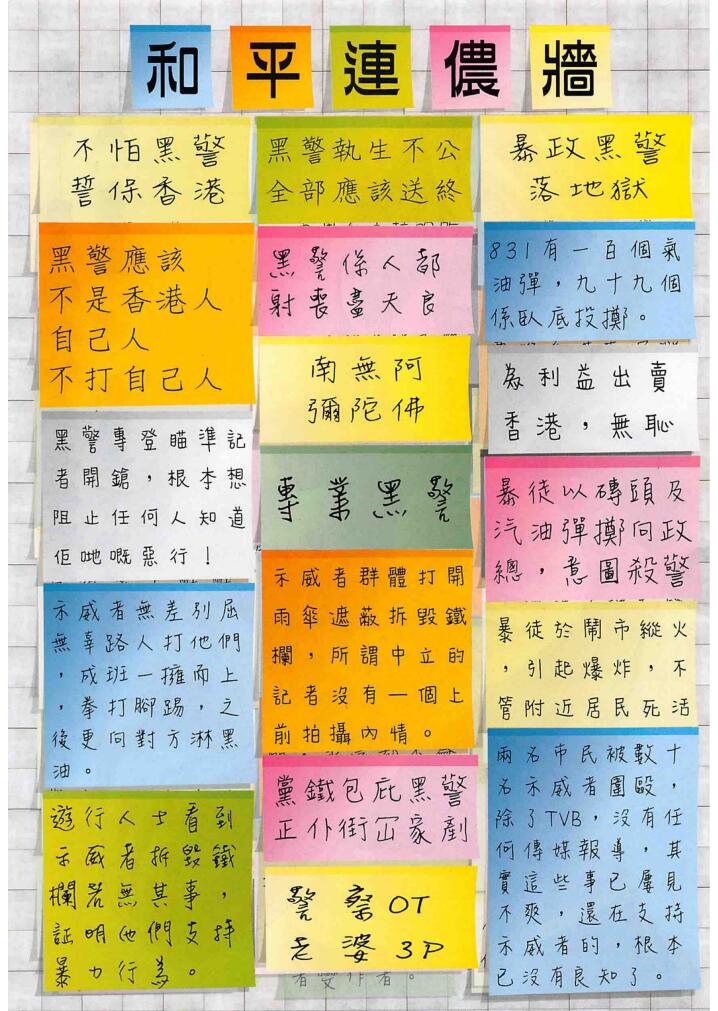 和平連儂牆
不怕黑警
誓保香港
黑警應該
不是香港人
自己人
不打自己人
黑警專登瞄準記
者開鎗，根本想
阻止任何人知道
佢哋嘅惡行！
示威者無差別屈
無辜路人打他們
，成班一擁而上
，拳打腳踢，之
後更向對方淋黑
油。
遊行人士看到
示威者拆毀鐵
欄若無其事，
証明他們支持
暴力行為。
黑警執生不公
全部應該送終
黑警係人都
射喪盡天良
南無阿
彌陀佛
專業黑警
示威者群體打開
雨傘遮蔽拆毀鐵
欄，所謂中立的
記者沒有一個上
前拍攝內情。
黨鐵包庇黑警
正仆街冚家剷
警察OT
老婆3P
者變作者。
暴政黑警
落地獄
831有一百個氣
油彈，九十九個
係臥底投擲。
為利益出賣
香港，無恥
暴徒以磚頭及
汽油彈擲向政
總，意圖殺警
暴徒於鬧市縱火
，引起爆炸，不
管附近居民死活
兩名市民被數十
名示威者圍毆，
除了TVB，沒有任
何傳媒報導，其
實這些事已屢見
不爽，還在支持
示威者的，根本
已沒有良知了。